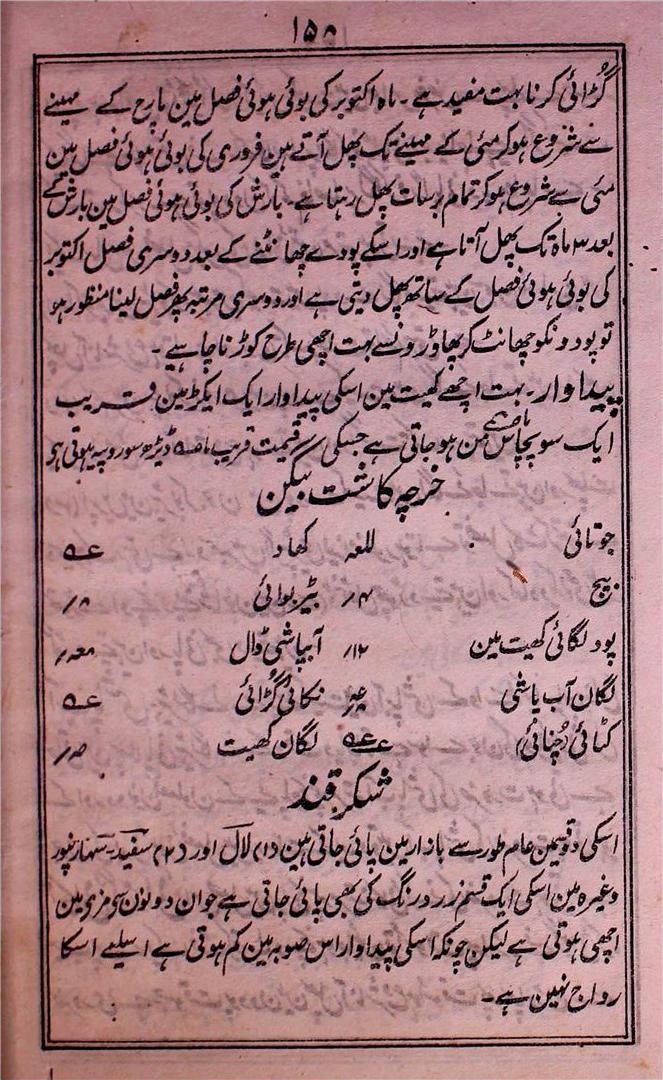 ۱۵۸
گڑائی کرنا بہت مفید ہے۔ ماہ اکتوبر کی بوئی ہوئی فصل مین مارچ کے مہینے
سے شروع ہوکر مئی کے مہینے تک پھل آتے ہین فروری کی بوئی ہوئی فصل مین
مئی سے شروع ہوکر تمام برسات پھل رہتا ہے۔ بارش کی بوئی ہوئی فصل مین بارش کے
بعد ۳ ماہ تک پھل آتا ہے اور اسکے پودے چھانٹنے کے بعد دوسری فصل اکتوبر
کی بوئی ہوئی فصل کے ساتھ پھل دیتی ہے اور دوسری مرتبہ پھر فصل لینا منظور ہو
تو پودونکو چھانٹ کر پھاوڑونسے بہت اچھی طرح کوڑنا چاہیے۔
پیداوار۔ بہت اچھے کھیت مین اسکی پیداوار ایک ایکڑ مین قریب
ایک سو پچاس من ہو جاتی ہے جسکی قیمت قریب ڈیڑھ سو روپیہ ہوتی ہو
خرچہ کاشت بیگن
جوتائی للعہ کھاد
بیج ۴؍ بیڑ بوائی ۸؍
پود لگائی کھیت مین ۱۲؍ آبپاشی ڈال
لگان آب پاشی نکائی گڑائی
کٹائی (چنائی) لگان کھیت
شکر قند
اسکی دو قسمین عام طور سے بازار مین پائی جاتی ہین (۱) لال اور (۲) سفید۔ سہارنپور
وغیرہ مین اسکی ایک قسم زرد رنگ کی بھی پائی جاتی ہے جو ان دونون سی مزی مین
اچھی ہوتی ہے لیکن چونکہ اسکی پیداوار اس صوبہ مین کم ہوتی ہے اسلیے اسکا
رواج نہین ہے۔